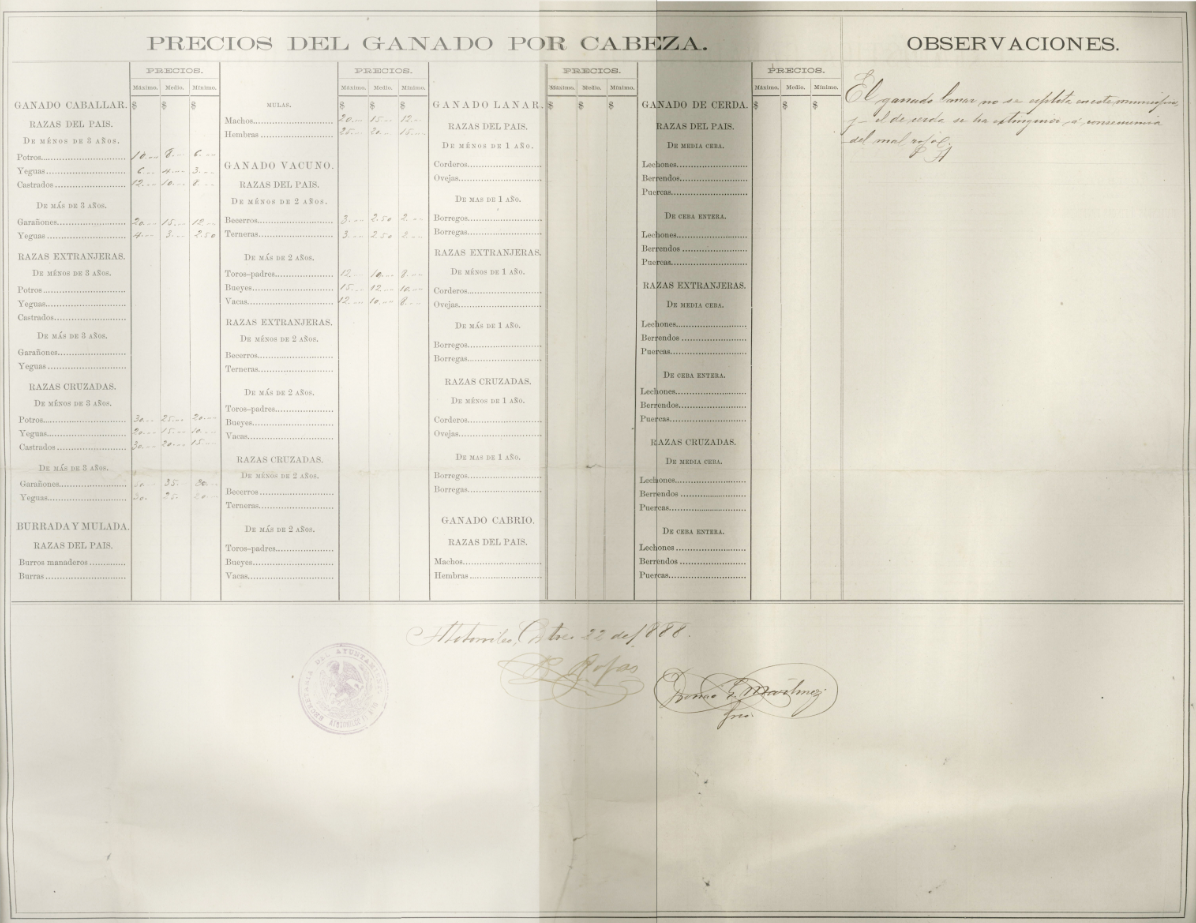 PRECIOS DEL GANADO POR CABEZA.
OBSERVACIONES.
PRECIOS.
Máximo. Medio. Mínimo.
GANADO CABALLAR. $ $ $
RAZAS DEL PAIS.
DE MÉNOS DE 3 AÑOS.
Potros 10 8 6
Yeguas 6 4 3
Castrados 12 10 8
DE MÁS DE 3 AÑOS.
Garañones 20 15 12
Yeguas 4 3 2.50
RAZAS EXTRANJERAS.
DE MÉNOS DE 3 AÑOS.
Potros
Yeguas
Castrados
DE MÁS DE 3 AÑOS.
Garañones
Yeguas
RAZAS CRUZADAS.
DE MÉNOS DE 3 AÑOS.
Potros 30 25 20
Yeguas 20 15 10
Castrados 30 20 15
DE MÁS DE 3 AÑOS.
Garañones 35 30
Yeguas 30 25 20
BURRADA Y MULADA.
RAZAS DEL PAIS.
Burros manaderos
Burras
PRECIOS.
Máximo. Medio. Mínimo.
MULAS. $ $ $
Machos 20 15 12
Hembras 25 20 15
GANADO VACUNO.
RAZAS DEL PAIS.
DE MÉNOS DE 2 AÑOS.
Becerros 3 2.50 2
Terneras 3 2.50 2
DE MÁS DE 2 AÑOS.
Toros-padres 12 10 8
Bueyes 15 12 10
Vacas 12 10 8
RAZAS EXTRANJERAS.
DE MÉNOS DE 2 AÑOS.
Becerros
Terneras
DE MÁS DE 2 AÑOS.
Toros-padres
Bueyes
Vacas
RAZAS CRUZADAS.
DE MÉNOS DE 2 AÑOS.
Becerros
Terneras
DE MÁS DE 2 AÑOS.
Toros-padres
Bueyes
Vacas
PRECIOS.
Máximo. Medio. Mínimo.
GANADO LANAR. $ $ $
RAZAS DEL PAIS.
DE MÉNOS DE 1 AÑO.
Corderos
Ovejas
DE MAS DE 1 AÑO.
Borregos
Borregas
RAZAS EXTRANJERAS.
DE MÉNOS DE 1 AÑO.
Corderos
Ovejas
DE MÁS DE 1 AÑO.
Borregos
Borregas
RAZAS CRUZADAS.
DE MÉNOS DE 1 AÑO.
Corderos
Ovejas
DE MAS DE 1 AÑO.
Borregos
Borregas
GANADO CABRIO.
RAZAS DEL PAIS.
Machos
Hembras
PRECIOS.
Máximo. Medio. Mínimo.
GANADO DE CERDA. $ $ $
RAZAS DEL PAIS.
DE MEDIA CEBA.
Lechones
Berrendos
Puercas
DE CEBA ENTERA.
Lechones
Berrendos
Puercas
RAZAS EXTRANJERAS.
DE MEDIA CEBA.
Lechones
Berrendos
Puercas
DE CEBA ENTERA.
Lechones
Berrendos
Puercas
RAZAS CRUZADAS.
DE MEDIA CEBA.
Lechones
Berrendos
Puercas
DE CEBA ENTERA.
Lechones
Berrendos
Puercas
El ganado lanar no se esplota en este municipio
y el de cerda se ha estinguido á consecuencia
del mal
Atotonilco, 22 de 1888.
Rojas
Martinez
Srio.
AYUNTAMIENTO